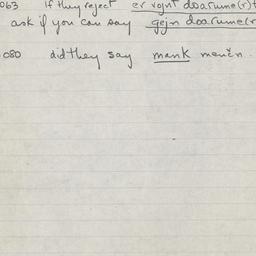 063 If they reject er vojnt doarume(r)t
ask if you can say gejn doarume(r
080 did they say mank menčn.